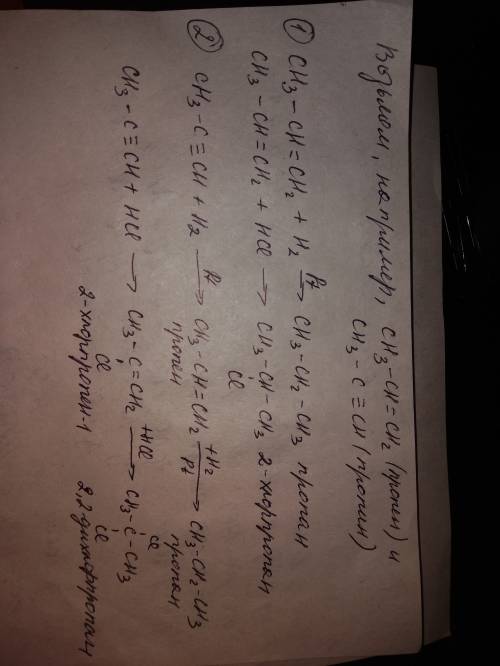 Возьмем, например, CH3-CH=CH2 (пропен) и
CH3-C≡CH (пропин)
① CH3-CH=CH2 + H2 Pt→ CH3-CH2-CH3 пропан
CH3-CH=CH2 + HCl → CH3-CH-CH3 2-хлорпропан
Cl
② CH3-C≡CH + H2 Pt→ CH3-CH=CH2 +H2 Pt→ CH3-CH2-CH3
пропен пропан
CH3-C≡CH + HCl → CH3-C=CH2 +HCl→ CH3-C-CH3
Cl Cl Cl
2-хлорпропен-1 2,2 дихлорпропан